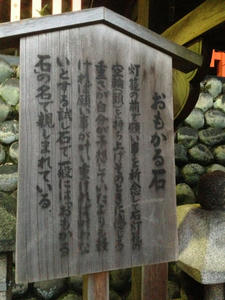 おもかる石
灯篭の前で願い事を祈念して石灯篭の
空輪(頭)を持ち上げ、そのときに感じる
重さが自分が予想していたよりも軽
ければ願い事が叶い、重ければ叶わな
いとする試し石で一般には"おもかる
石"の名で親しまれている。